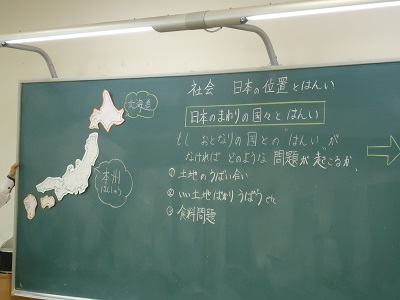 社会 日本の位置とはんい
日本のまわりの国々とはんい
もし おとなりの国との"はんい"が
なければ どのような 問題が起こるか。
① 土地のうばい合い
② いい土地ばかりうばう etc
③ 食料問題
北海道
本州
ほんしゅう